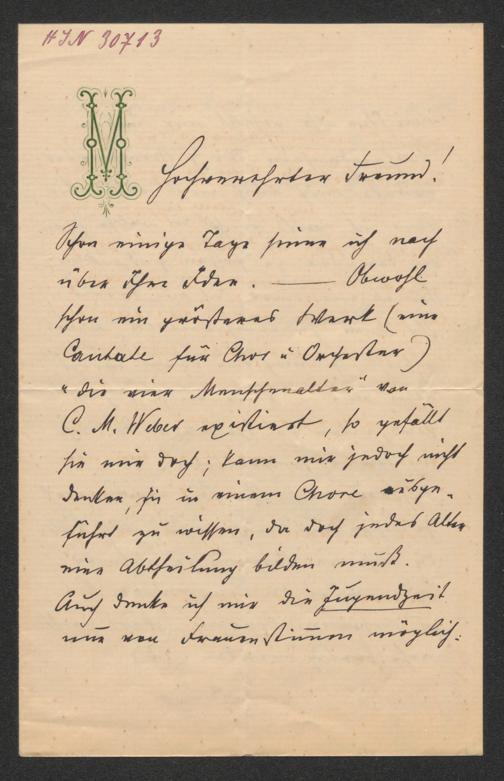 HIN 30713
M
Hochverehrter Freund!
Schon einige Tage sinne ich nach
über Ihre Idee. — Obwohl
schon ein größeres Werk (eine
Cantate für Chor u Orchester)
"die vier Menschenalter" von
C. M. Weber existiert, so gefällt
sie mir doch; kann mir jedoch nicht
denken, sie in einem Chore ausge-
führt zu wissen, da doch jedes Alter
eine Abtheilung bilden muß.
Auch denke ich mir die Jugendzeit
nur von Frauenstimmen möglich: